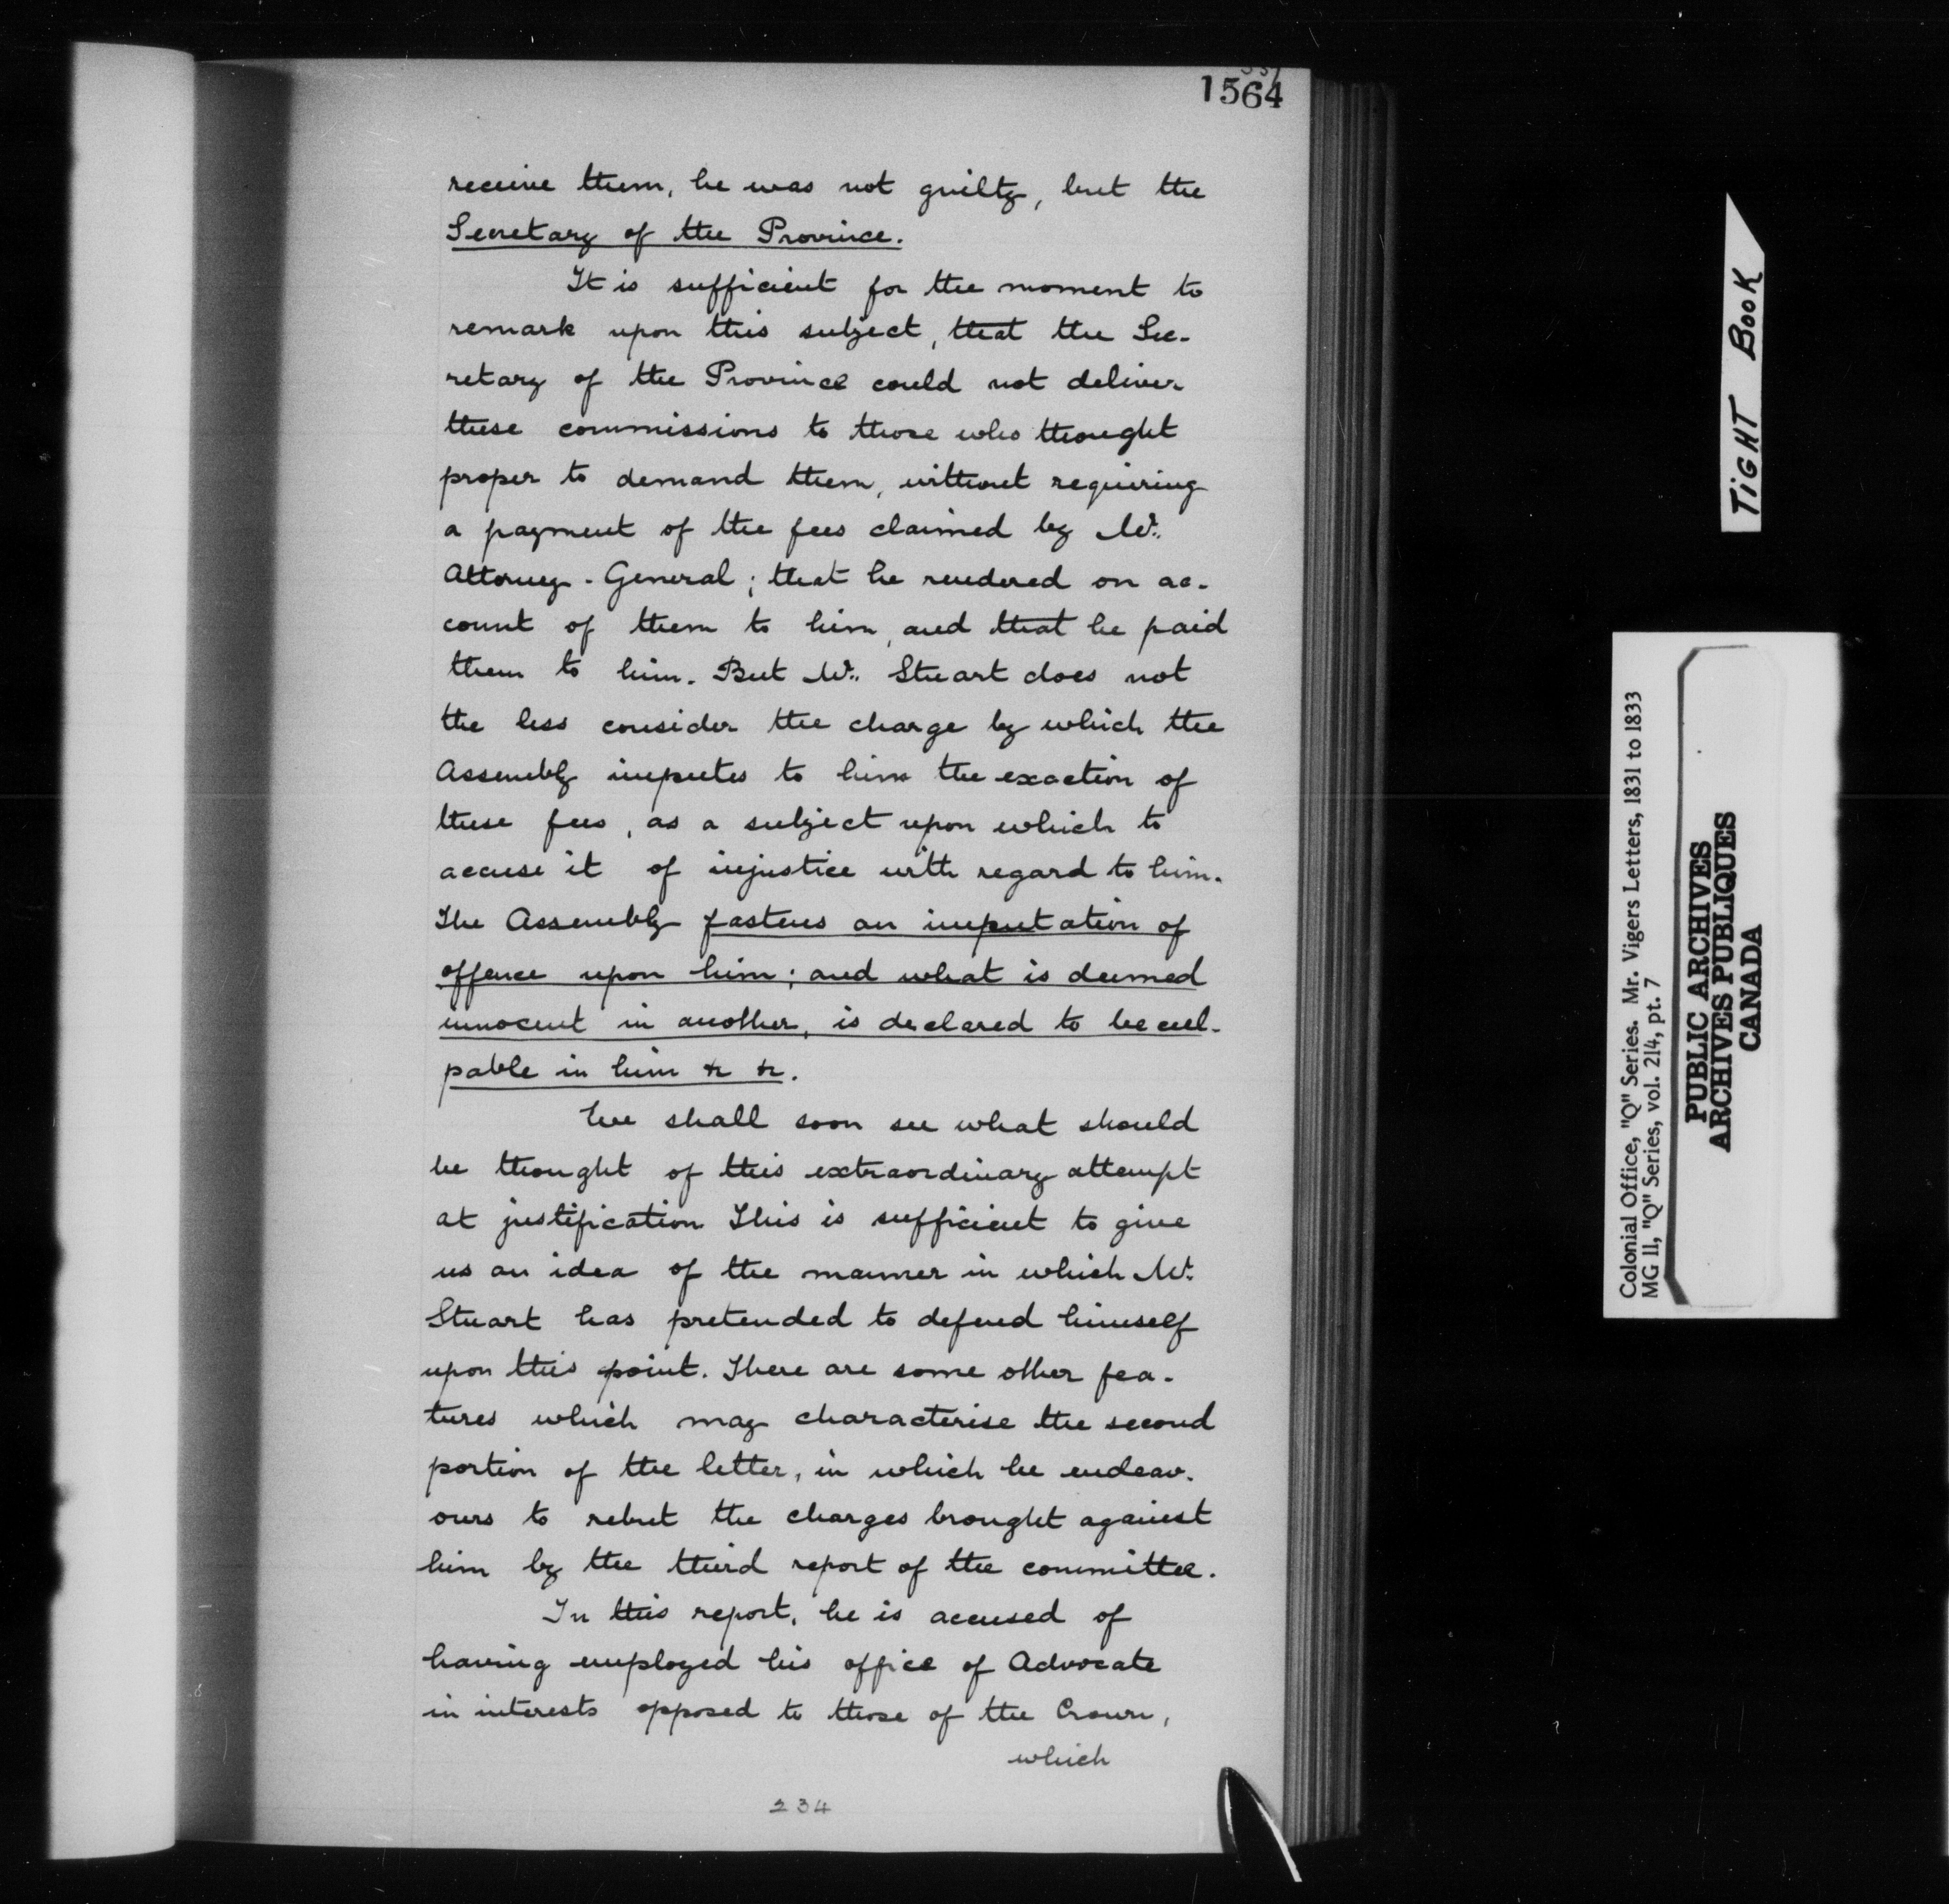 1564
receive them, he was not guilty, but the
Secretary of the Province.
It is sufficient for the moment to
remark upon this subject, that the Sec-
retary of the Province could not deliver
these commissions to those who thought
proper to demand them, without requiring
a payment of the fees claimed by Mr.
Attorney-General; that he rendered an ac-
count of them to him, and that he paid
them to him. But Mr. Stuart does not
the less consider the charge by which the
Assembly imputes to him the exaction of
these fees, as a subject upon which to
accuse it of injustice with regard to him.
The Assembly fastens an imputation of
offence upon him; and what is deemed
innocent in another, is declared to be cul-
pable in him &c &c.
We shall soon see what should
be thought of this extraordinary attempt
at justification This is sufficient to give
us an idea of the manner in which Mr.
Stuart has pretended to defend himself
upon this point. There are some other fea-
tures which may characterise the second
portion of the letter, in which he endeav-
ours to rebut the charges brought against
him by the third report of the committee.
In this report, he is accused of
having employed his office of Advocate
in interests opposed to those of the Crown,
which
234
TIGHT BOOK
Colonial Office, "Q" Series. Mr. Vigers Letters, 1831 to 1833
MG 11, "Q" Series, vol. 214, pt. 7
PUBLIC ARCHIVES
ARCHIVES PUBLIQUES
CANADA